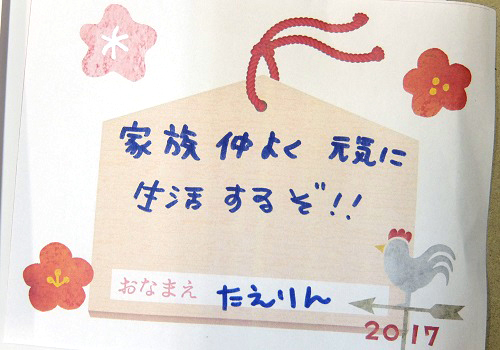 家族 仲よく 元気に
生活 するぞ!!
おなまえ たえりん
2017